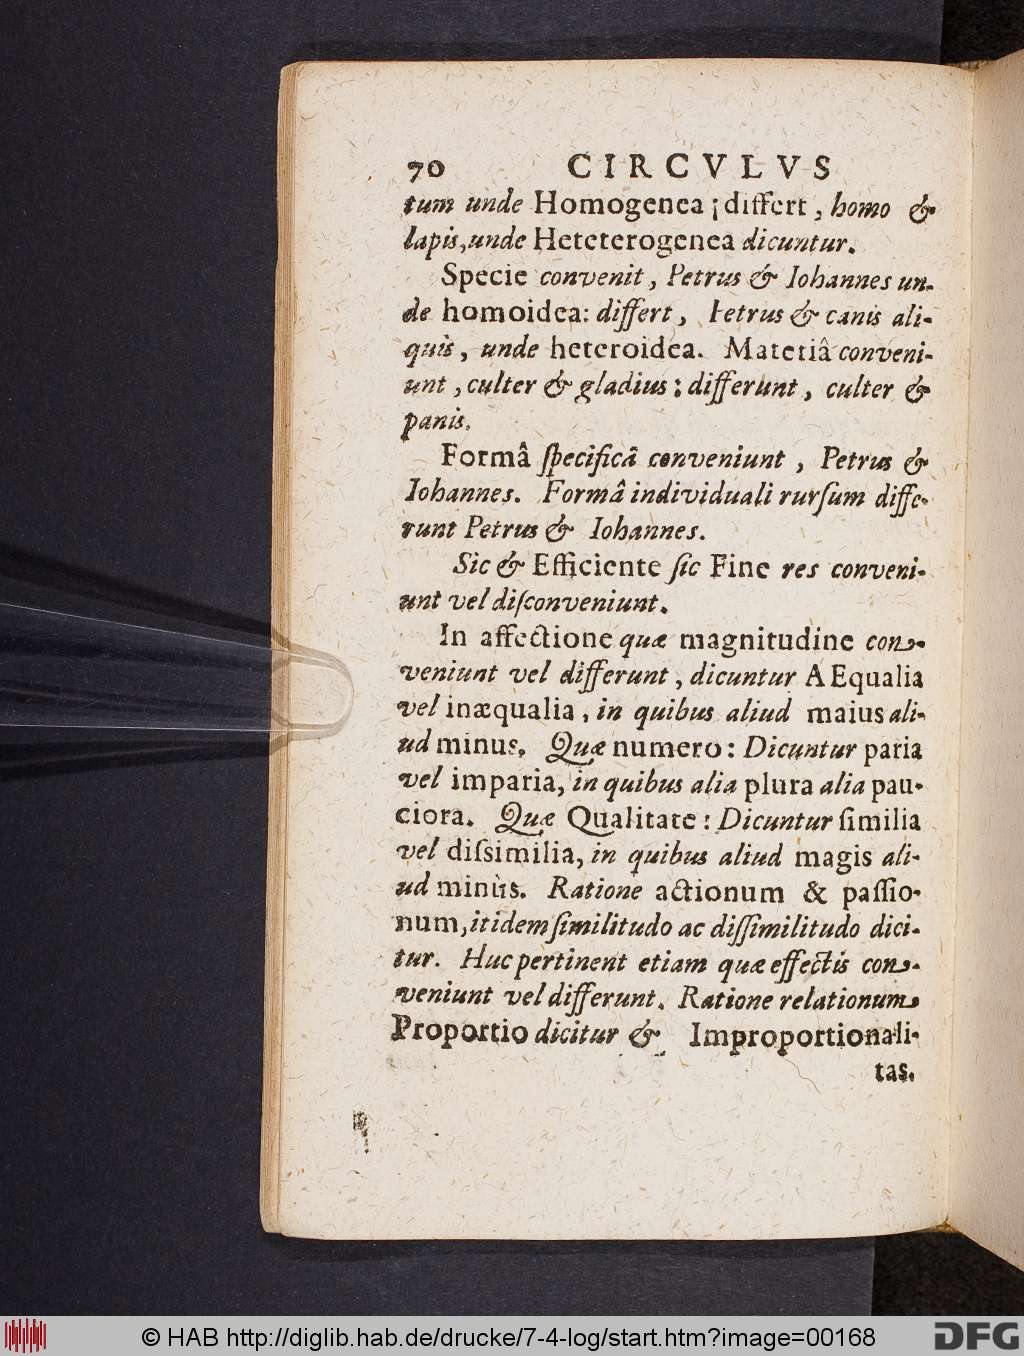 70 CIRCVLVS
tum unde Homogenea ¡differt, homo &
lapis, unde Heteterogenea dicuntur.
Specie convenit, Petrus & Iohannes un-
de homoidea: differt, Petrus & canis ali-
quis, unde heteroidea. Materiâ conveni-
unt, culter & gladius: differunt, culter &
panis.
Formâ ſpecificâ conveniunt, Petrus &
Iohannes. Formâ individuali rurſum diffe-
runt Petrus & Iohannes.
Sic & Efficiente ſic Fine res conveni-
unt vel diſconveniunt.
In affectione quæ magnitudine con-
veniunt vel differunt, dicuntur AEqualia
vel inæqualia, in quibus aliud maius ali-
ud minus. Quæ numero: Dicuntur paria
vel imparia, in quibus alia plura alia pau-
ciora. Quæ Qualitate: Dicuntur ſimilia
vel diſsimilia, in quibus aliud magis ali-
ud minùs. Ratione actionum & paſſio-
num, itidem ſimilitudo ac diſſimilitudo dici-
tur. Huc pertinent etiam quæ effectis con-
veniunt vel differunt. Ratione relationum
Proportio dicitur & Improportionali-
tas.
© HAB http://diglib.hab.de/drucke/7-4-log/start.htm?image=00168
DFG